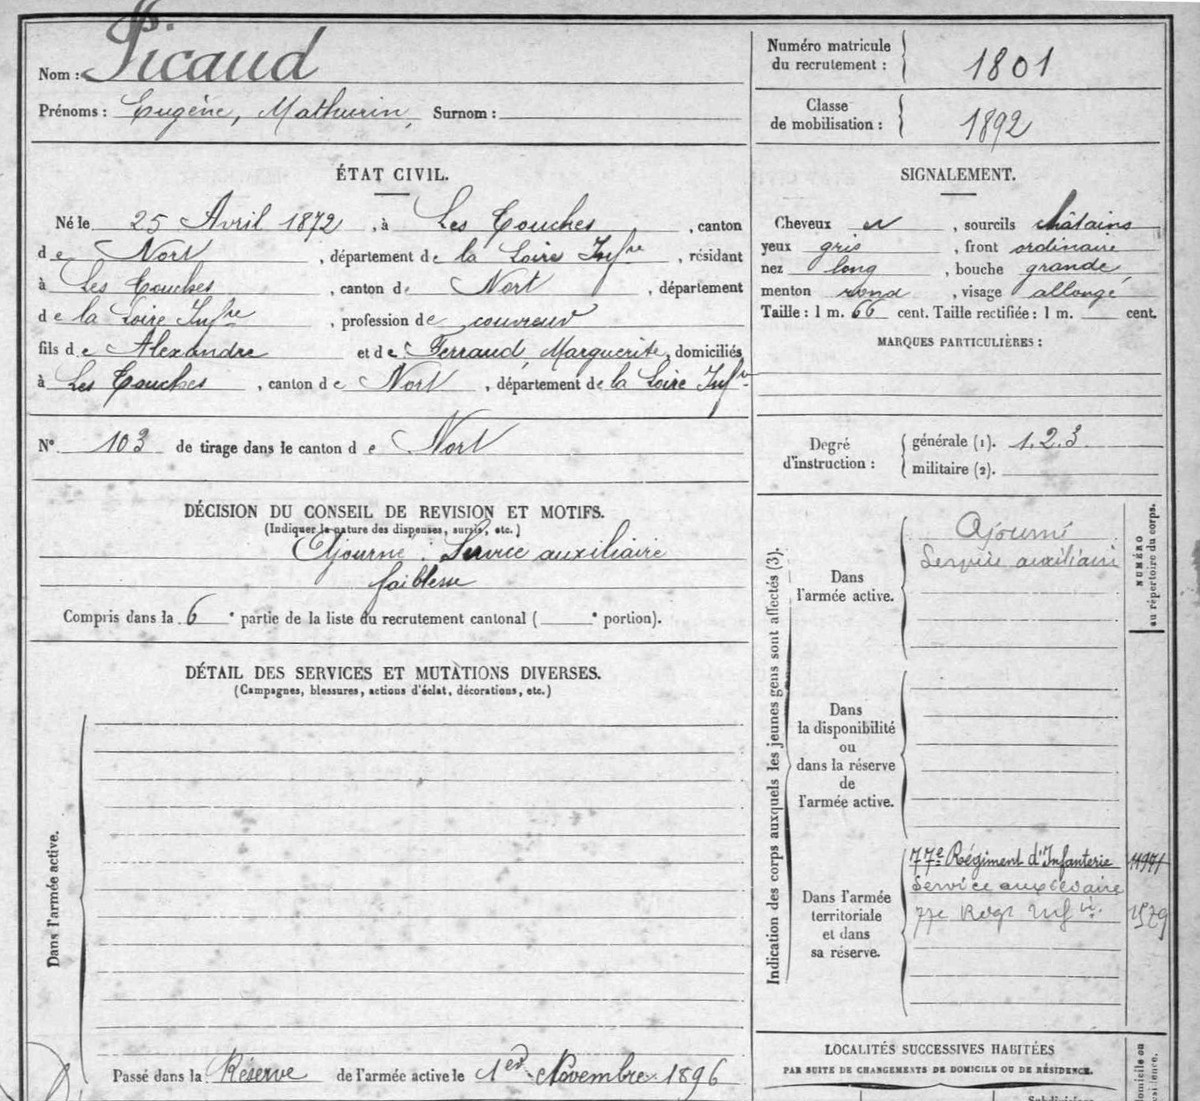 Nom : Picaud
Prénoms : Eugène, Mathurin, Surnom :
Numéro matricule du recrutement : 1801
Classe de mobilisation : 1892
ÉTAT CIVIL.
Né le 25 Avril 1872, à Les Touches, canton
de Nort, département de la Loire Infre, résidant
à Les Touches, canton de Nort, département
de la Loire Infre, profession de couvreur
fils de Alexandre et de Ferraud, Marguerite, domiciliés
à Les Touches, canton de Nort, département de la Loire Infre
N° 103 de tirage dans le canton de Nort
SIGNALEMENT.
Cheveux et, sourcils châtains
yeux gris, front ordinaire
nez long, bouche grande,
menton rond, visage allongé
Taille : 1 m. 66 cent. Taille rectifiée : 1 m. cent.
MARQUES PARTICULIÈRES :
Degré d'instruction :
générale (1). 1.2.3.
militaire (2).
DÉCISION DU CONSEIL DE REVISION ET MOTIFS.
(Indiquer la nature des dispenses, sursis, etc.)
Ajourné : Service auxiliaire
faiblesse
Compris dans la 6e partie de la liste du recrutement cantonal ( e portion).
DÉTAIL DES SERVICES ET MUTATIONS DIVERSES.
(Campagnes, blessures, actions d'éclat, décorations, etc.)
Dans l'armée active.
Passé dans la Réserve de l'armée active le 1er Novembre 1896
Indication des corps auxquels les jeunes gens sont affectés (3).
NUMÉRO
au répertoire du corps.
Dans
l'armée active.
Ajourné
Service auxiliaire
Dans
la disponibilité
ou
dans la réserve
de
l'armée active.
Dans l'armée
territoriale
et dans
sa réserve.
77e Régiment d'Infanterie
Service auxiliaire
77e Regt Infie
1579
LOCALITÉS SUCCESSIVES HABITÉES
PAR SUITE DE CHANGEMENTS DE DOMICILE OU DE RÉSIDENCE.